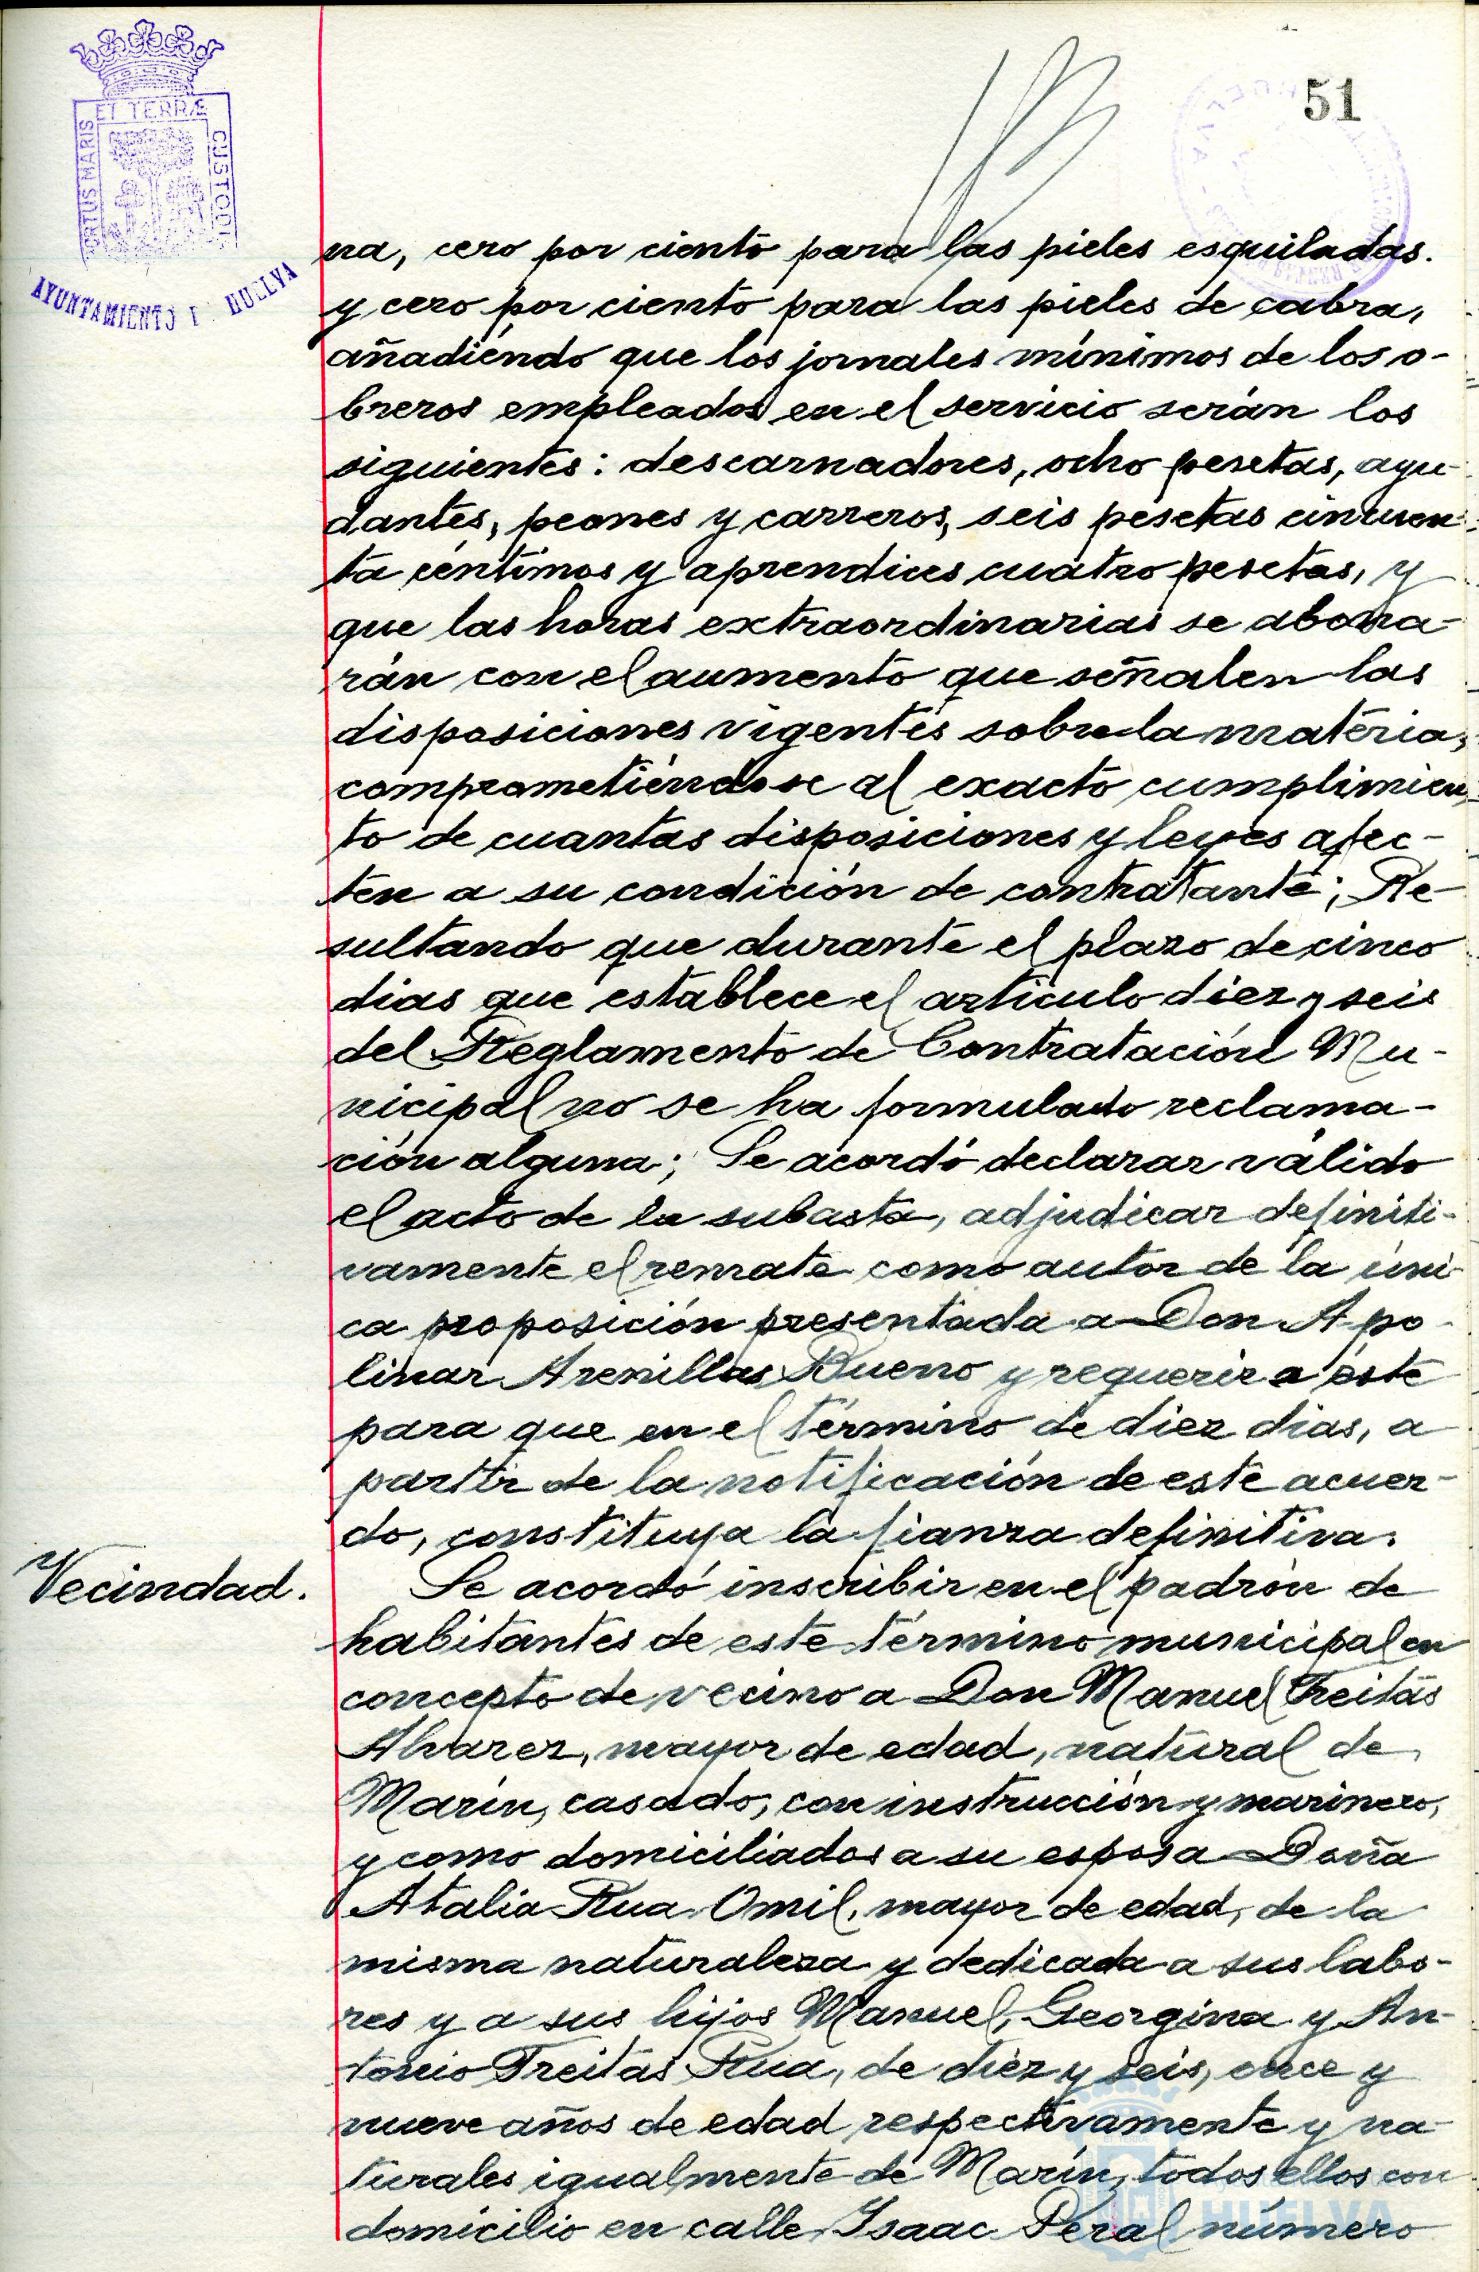 51
PORTUS MARIS ET TERRÆ CUSTODIA
AYUNTAMIENTO DE HUELVA
na, cero por ciento para las pieles esquiladas.
y cero por ciento para las pieles de cabra,
añadiendo que los jornales mínimos de los o-
breros empleados en el servicio serán los
siguientes: descarnadores, ocho pesetas, ayu-
dantes, peones y carreros, seis pesetas cincuen-
ta céntimos y aprendices cuatro pesetas, y
que las horas extraordinarias se abona-
rán con el aumento que señalen las
disposiciones vigentes sobre la materia,
comprometiéndose al exacto cumplimien-
to de cuantas disposiciones y leyes afec-
ten a su condición de contratante; Re-
sultando que durante el plazo de cinco
dias que establece el artículo diez y seis
del Reglamento de Contratación Mu-
nicipal no se ha formulado reclama-
ción alguna; Se acordó declarar válido
el acto de la subasta, adjudicar definiti-
vamente el remate como autor de la úni-
ca proposición presentada a Don Apo-
linar Arenillas Bueno y requerir a éste
para que en el término de diez dias, a
partir de la notificación de este acuer-
do, constituya la fianza definitiva.
Vecindad.
Se acordó inscribir en el padrón de
habitantes de este término municipal en
concepto de vecino a Don Manuel Freitás
Alvarez, mayor de edad, natural de
Marín, casado, con instrucción y marinero,
y como domiciliados a su esposa Doña
Atalia Rua Omil, mayor de edad, de la
misma naturaleza y dedicada a sus labo-
res y a sus hijos Manuel, Georgina y An-
tonio Freitás Rua, de diez y seis, once y
nueve años de edad respectivamente y na-
turales igualmente de Marín, todos ellos con
domicilio en calle Isaac Peral número
HUELVA